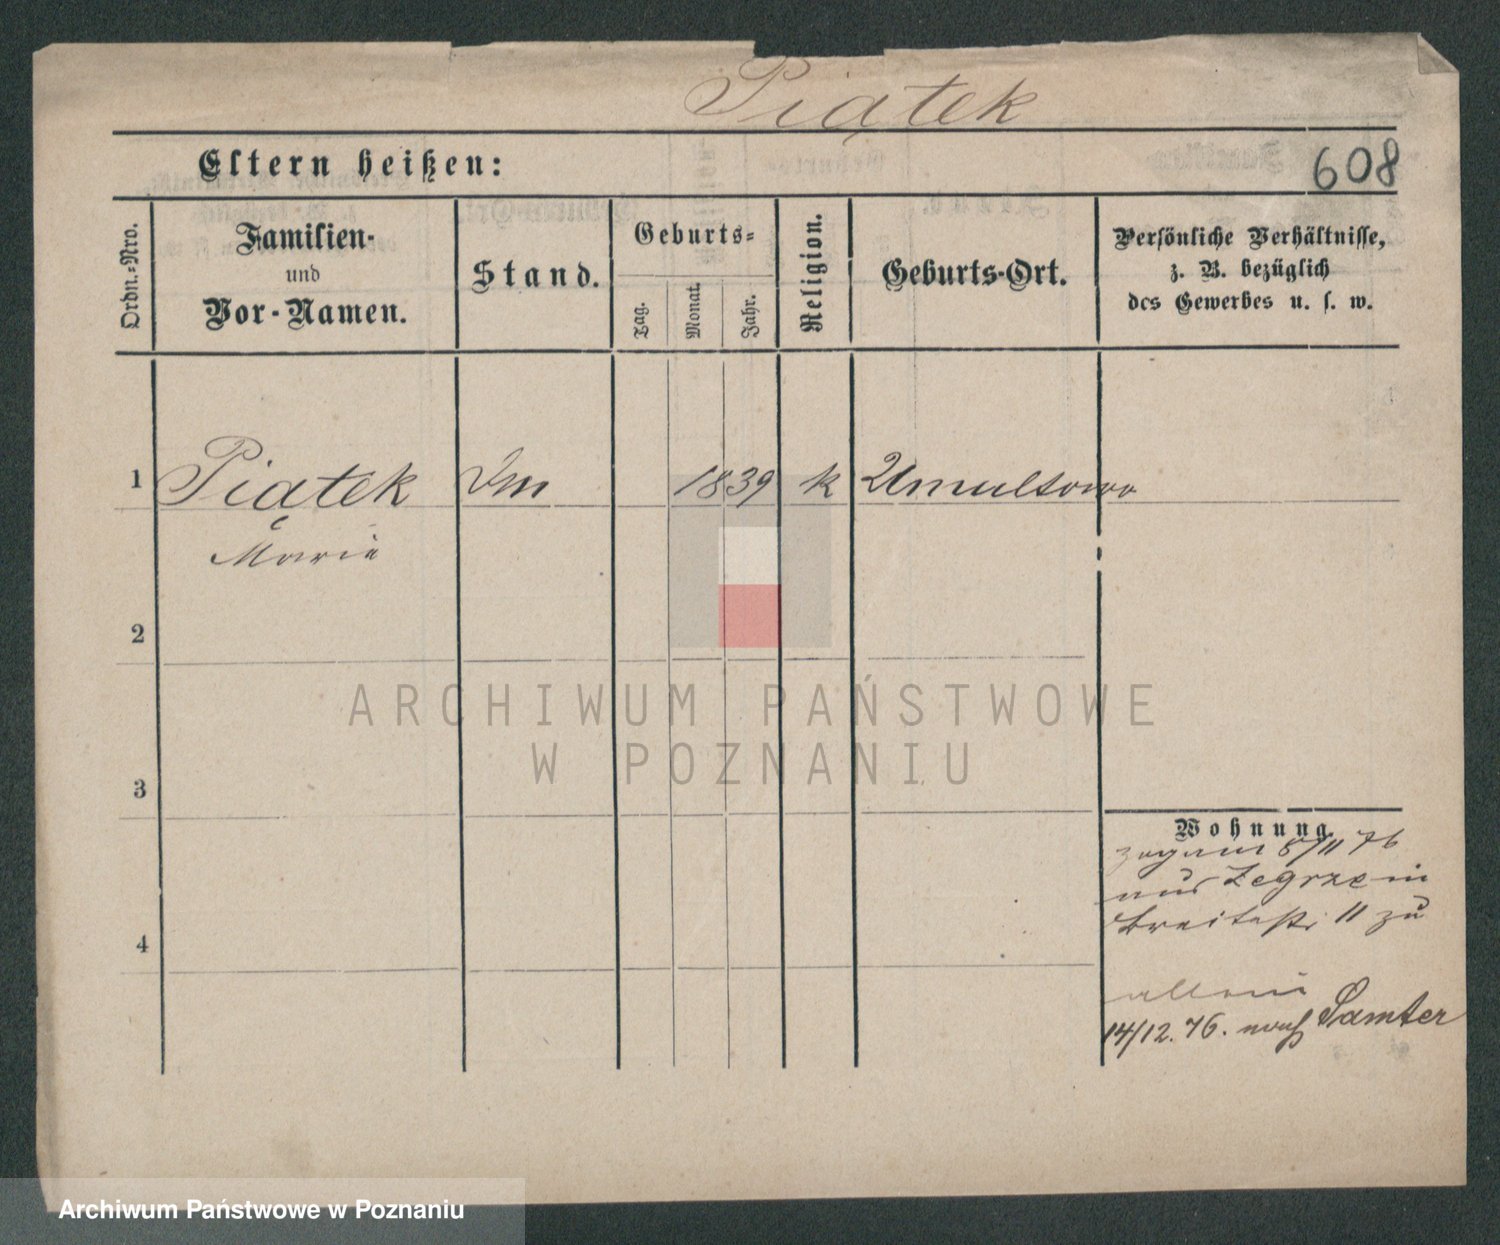 Piątek
Eltern heißen:
608
Ordn.-Nro.
Familien-
und
Vor-Namen.
Stand.
Geburts-
Tag.
Monat.
Jahr.
Religion.
Geburts-Ort.
Persönliche Verhältnisse,
z. B. bezüglich
des Gewerbes u. s. w.
1
Piątek
1839
k
Umultowo
Marie
2
3
4
Wohnung.
5/11 76
aus Zegrze in
Breitestr 11 zu
allein
14/12. 76. nach Samter
ARCHIWUM PAŃSTWOWE
W POZNANIU
Archiwum Państwowe w Poznaniu